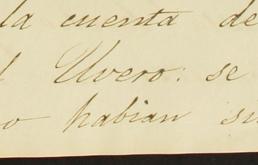 la cuenta de
l Uvero: se
o habian su